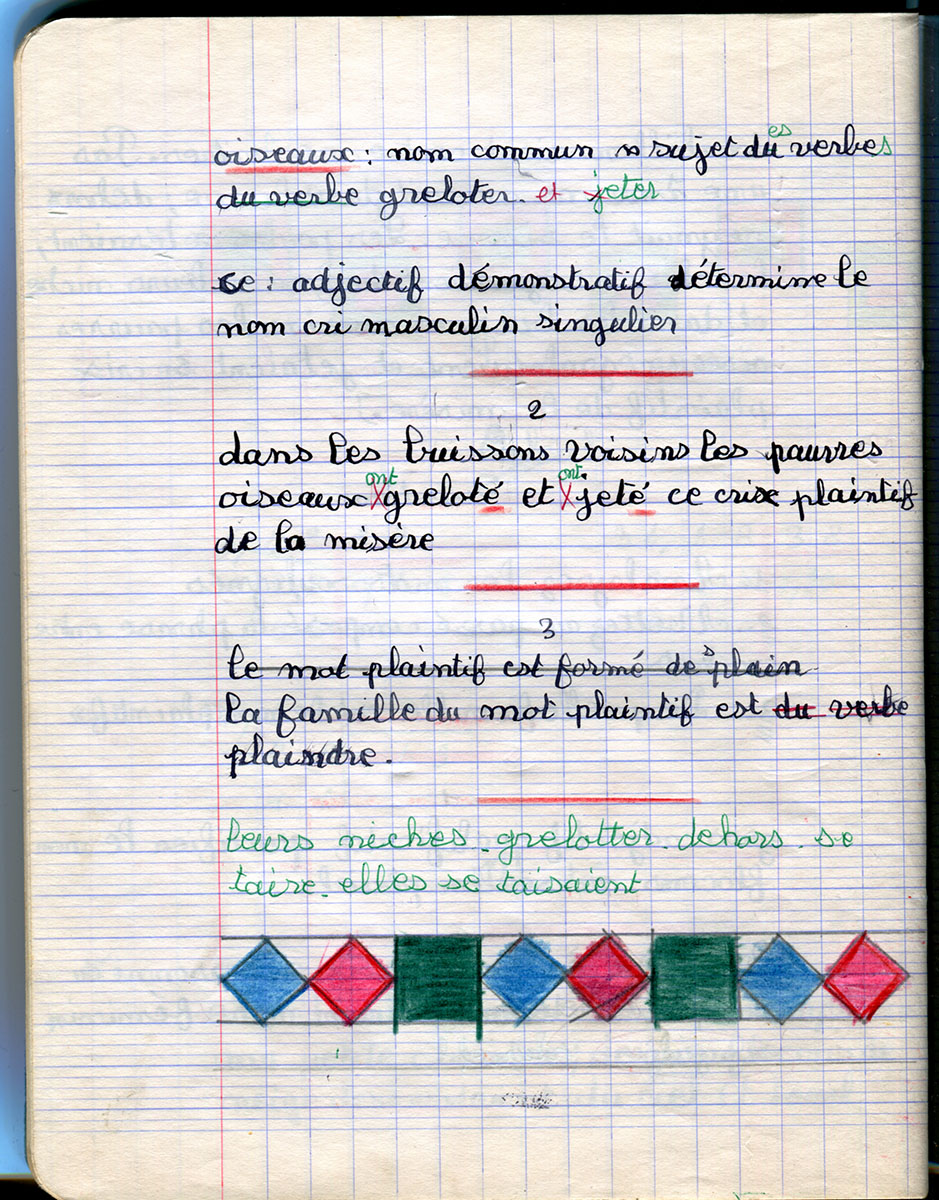 oiseaux : nom commun sujet du es verbes
du verbe greloter. et jeter
ce : adjectif démonstratif détermine le
nom cri masculin singulier
2
dans les buissons voisins les pauvres
oiseaux ont greloté et ont jeté ce crix plaintif
de la misère
3
le mot plaintif est formé de plain
la famille du mot plaintif est du verbe
plaindre.
leurs niches. grelotter. dehors. se
taire. elles se taisaient